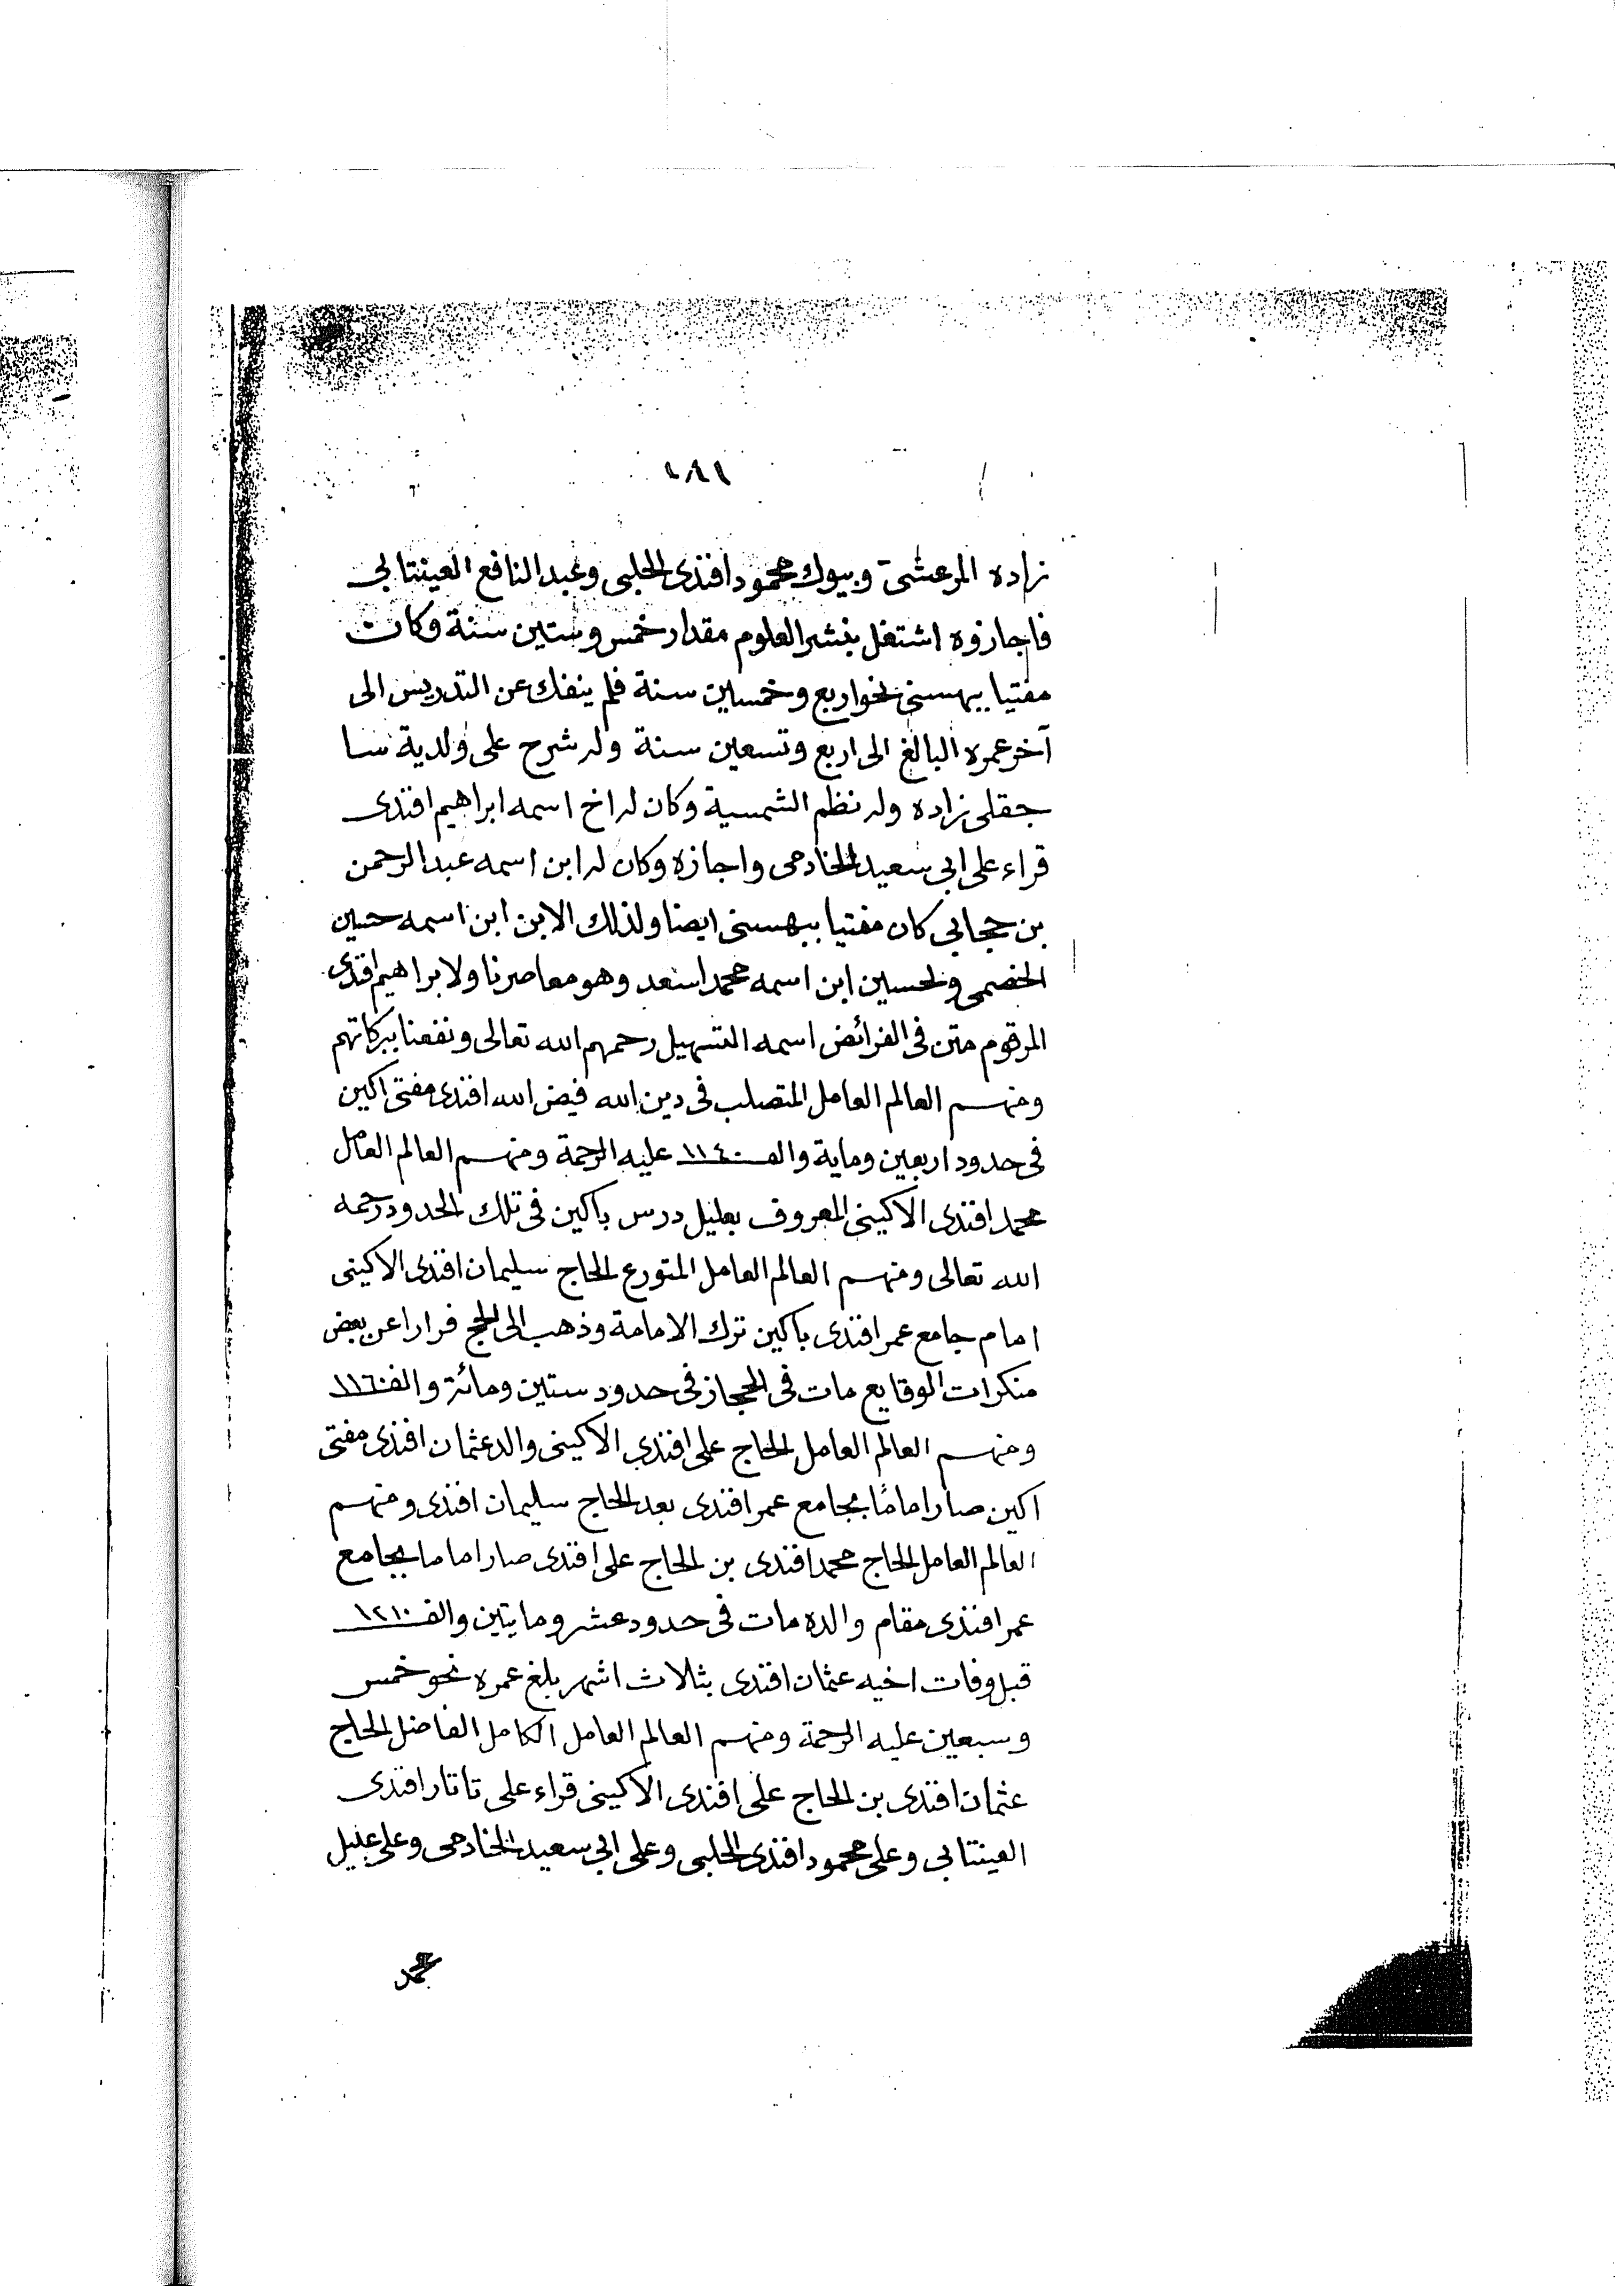 زاده المرعشى وبيوك محمود افندى الحلبى وعبد النافع العينتابى
فاجازوه اشتغل بنشر العلوم مقدار خمس وستين سنة وكان
مفتيا ببهسنى نحو اربع وخمسين سنة فلم ينفك عن التدريس الى
آخر عمره البالغ الى اربع وتسعين سنة وله شرح على ولدية سا
جقلى زاده وله نظم الشمسية وكان له اخ اسمه ابراهيم افندى
قراء على ابى سعيد الخادمى واجازه وكان له ابن اسمه عبد الرحمن
بن حجابى كان مفتيا ببهسنى ايضا ولذلك الابن ابن اسمه حسين
الخصمى ولحسين ابن اسمه محمد اسعد وهو معاصرنا ولابراهيم افندى
المرقوم متن فى الفرائض اسمه التسهيل رحمهم الله تعالى ونفعنا ببركاتهم
ومنهم العالم العامل المتصلب فى دين الله فيض الله افندى مفتى اكين
فى حدود اربعين وماية والف ١١٤٠ عليه الرحمة ومنهم العالم العامل
محمد افندى الاكينى المعروف بعليل درس باكين فى تلك الحدود رحمه
الله تعالى ومنهم العالم العامل المتورع الحاج سليمان افندى الاكينى
امام جامع عمر افندى باكين ترك الامامة وذهب الى الحج فرارا عن بعض
منكرات الوقايع مات فى الحجاز فى حدود ستين ومائة والف ١١٦٠
ومنهم العالم العامل الحاج على افندى الاكينى والد عثمان افندى مفتى
اكين صار اماما بجامع عمر افندى بعد الحاج سليمان افندى ومنهم
العالم العامل الحاج محمد افندى بن الحاج على افندى صار اماما بجامع
عمر افندى مقام والده مات فى حدود عشر ومايتين والف ١٢١٠
قبل وفات اخيه عثمان افندى بثلاث اشهر بلغ عمره نحو خمس
وسبعين عليه الرحمة ومنهم العالم العامل الكامل الفاضل الحاج
عثمان افندى بن الحاج على افندى الاكينى قراء على تاتار افندى
العينتابى وعلى محمود افندى الحلبى وعلى ابى سعيد الخادمى وعلى عليل
محمد